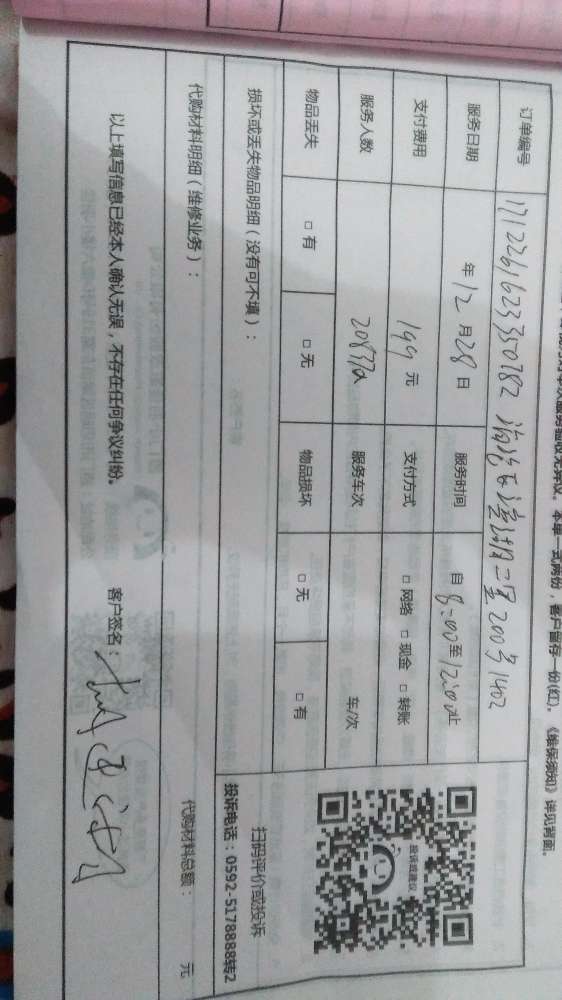 本单一式两份，客户留存一份(红)。《维保须知》详见背面。
订单编号 1712261623350782 二里200号1402
服务日期 年12月28日 服务时间 自8:00至12:00止
支付费用 199元 支付方式 □网络 □现金 □转账
服务人数 服务车次 车/次
物品丢失 □有 □无 物品损坏 □无 □有
损坏或丢失物品明细（没有可不填）：
投诉或建议
扫码评价或投诉
投诉电话：0592-5178888转2
代购材料明细（维修业务）：
代购材料总额： 元
以上填写信息已经本人确认无误，不存在任何争议纠纷。 客户签名：